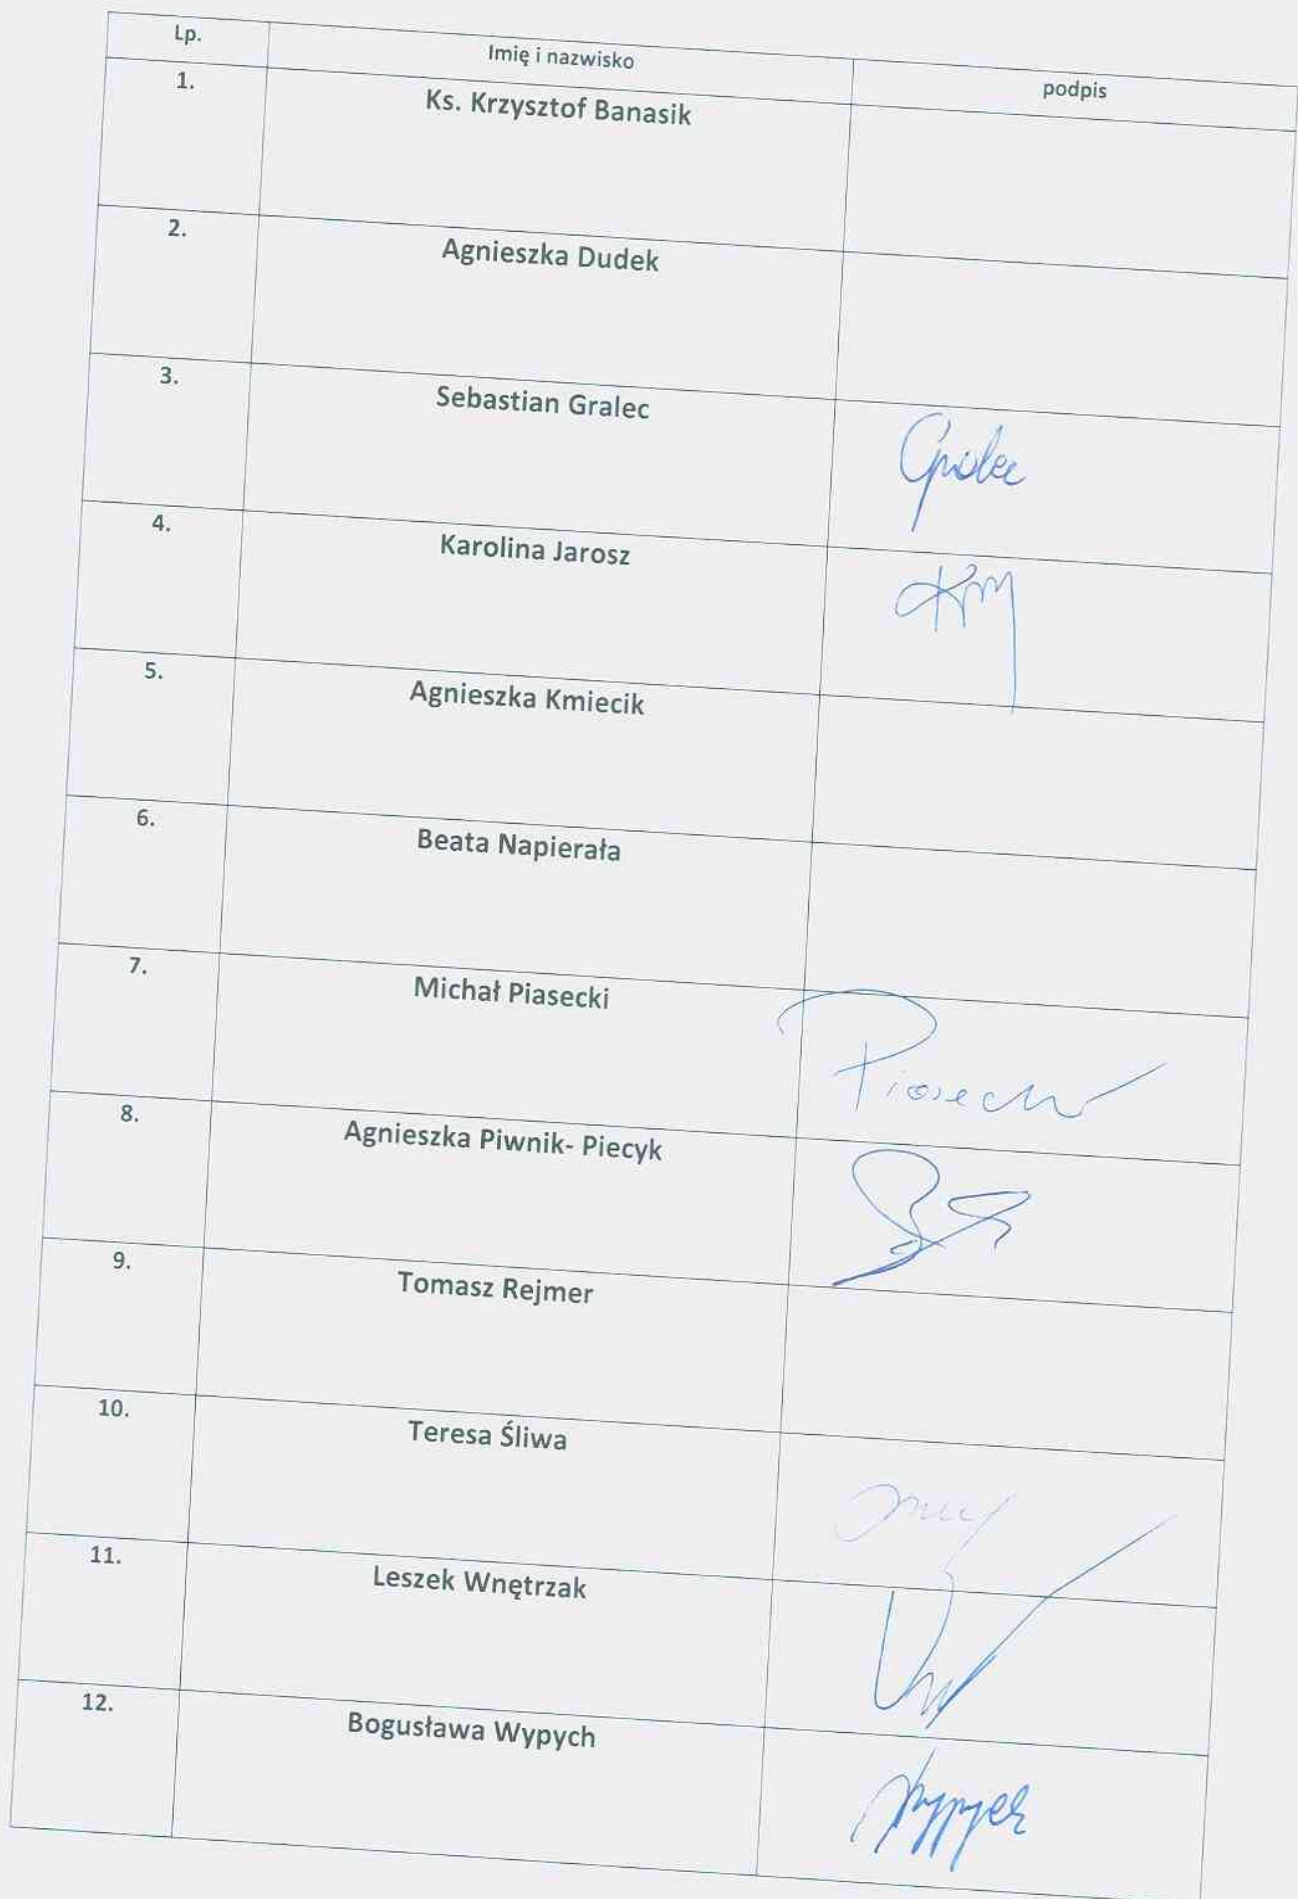 Lp. Imię i nazwisko podpis
1. Ks. Krzysztof Banasik
2. Agnieszka Dudek
3. Sebastian Gralec
Gralec
4. Karolina Jarosz
5. Agnieszka Kmiecik
6. Beata Napierała
7. Michał Piasecki
Piasecki
8. Agnieszka Piwnik- Piecyk
9. Tomasz Rejmer
10. Teresa Śliwa
11. Leszek Wnętrzak
12. Bogusława Wypych
Wypych